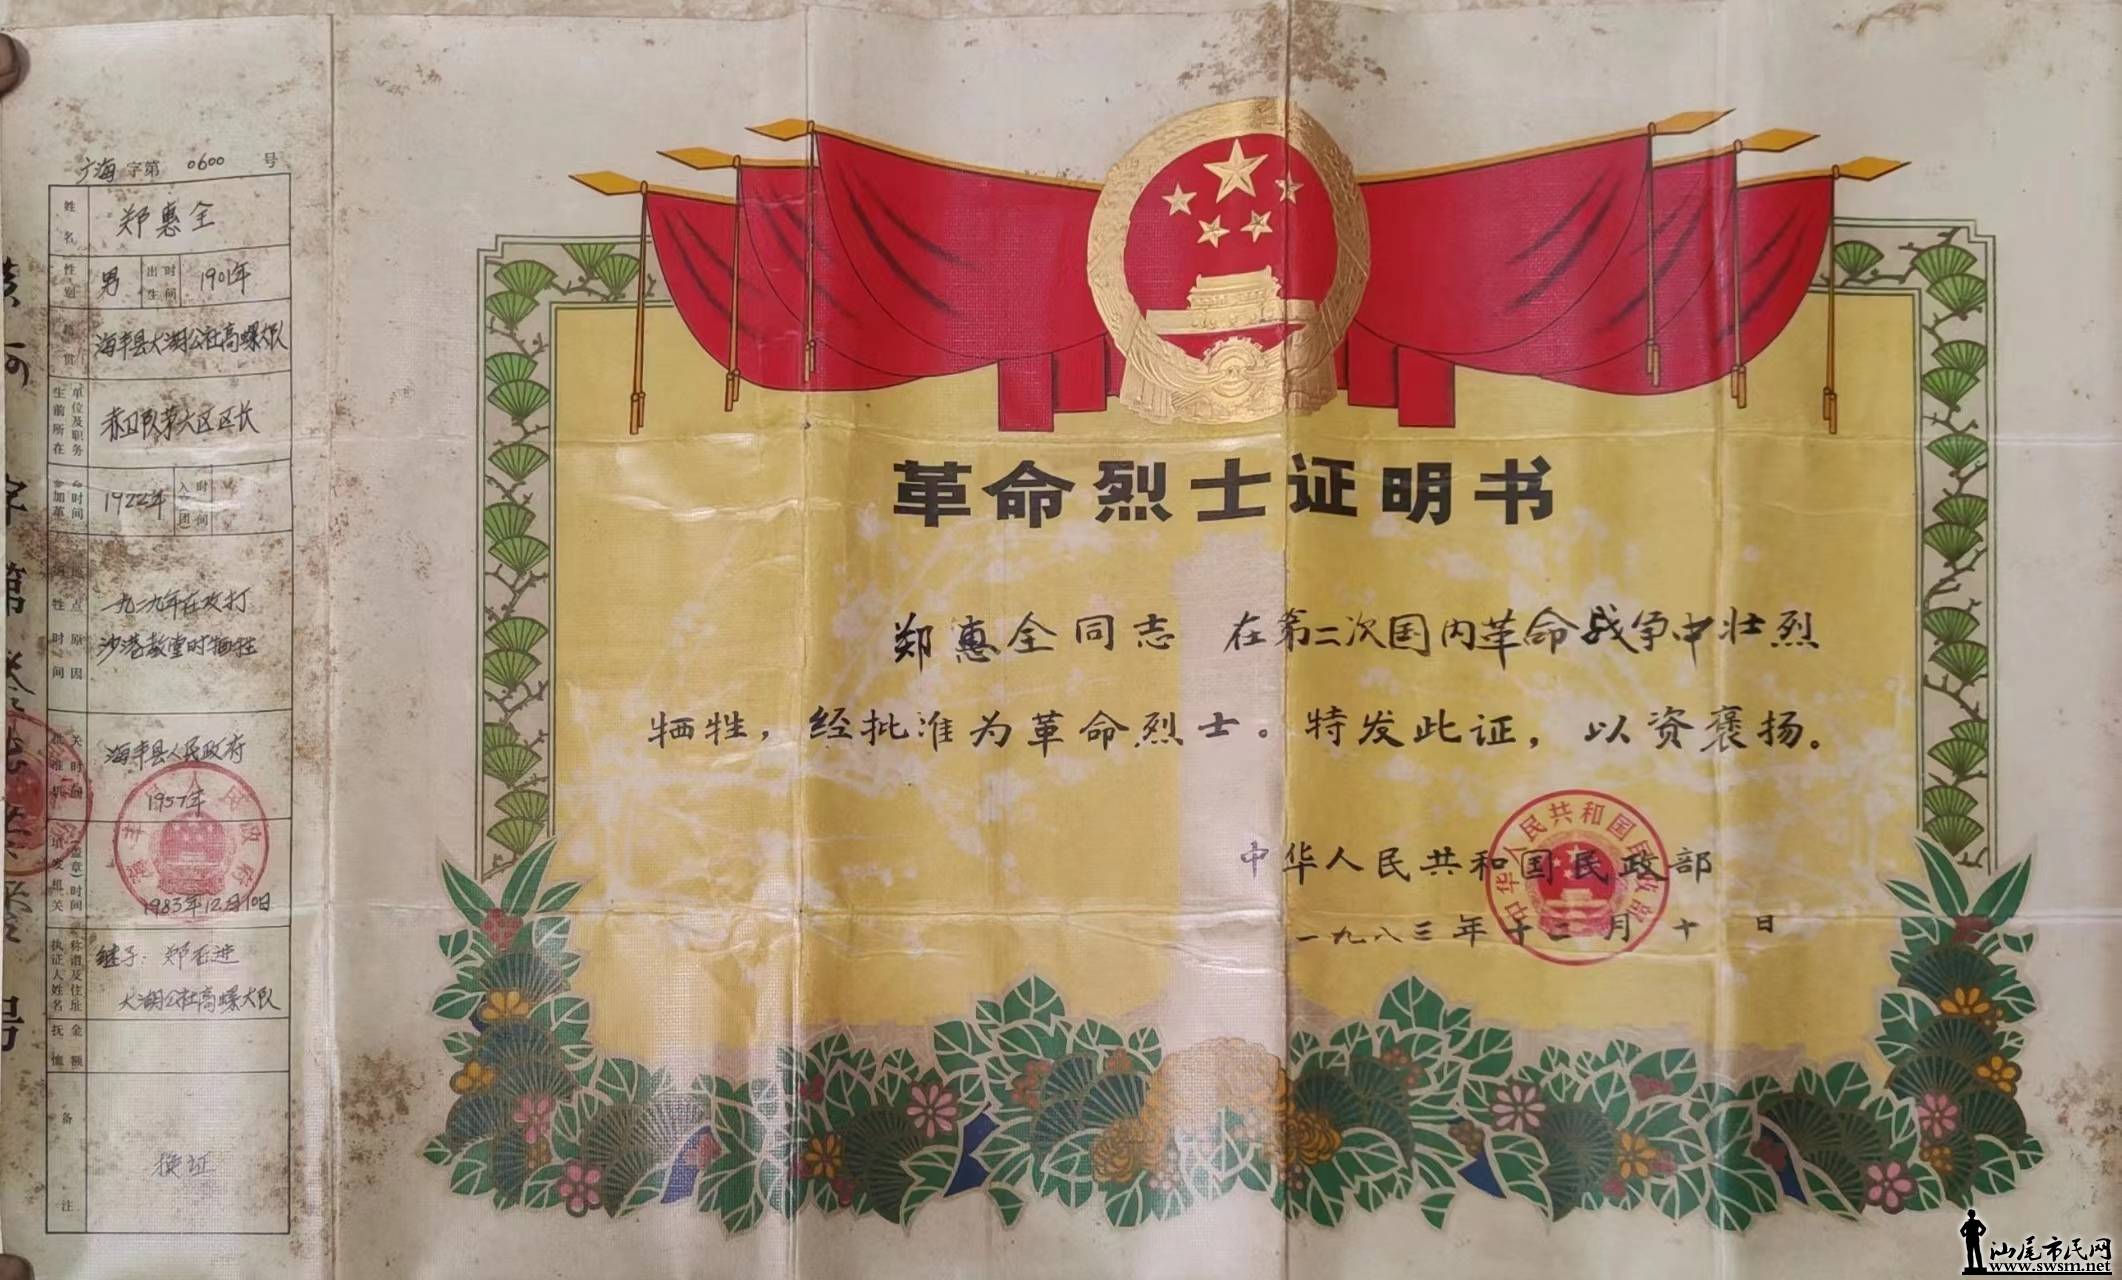 广海字第0600号
姓名 郑惠全
性别 男 出生时间 1901年
籍贯 海丰县大湖公社高螺大队
生前所在单位及职务 赤卫队第六区区长
参加革命时间 1922年 入党(团)时间
牺牲时间地点原因 一九二九年在攻打
沙港教堂时牺牲
批准机关时间 海丰县人民政府
1957年
填发机关(盖章)时间
1983年12月10日
执证人姓名称谓及住址 继子:郑石进
大湖公社高螺大队
抚恤金额
备注 换证
革命烈士证明书
郑惠全同志 在第二次国内革命战争中壮烈
牺牲,经批准为革命烈士。特发此证,以资褒扬。
中华人民共和国民政部
一九八三年十二月十日
中华人民共和国民政部
海丰县人民政府
汕尾市民网
www.swsm.net